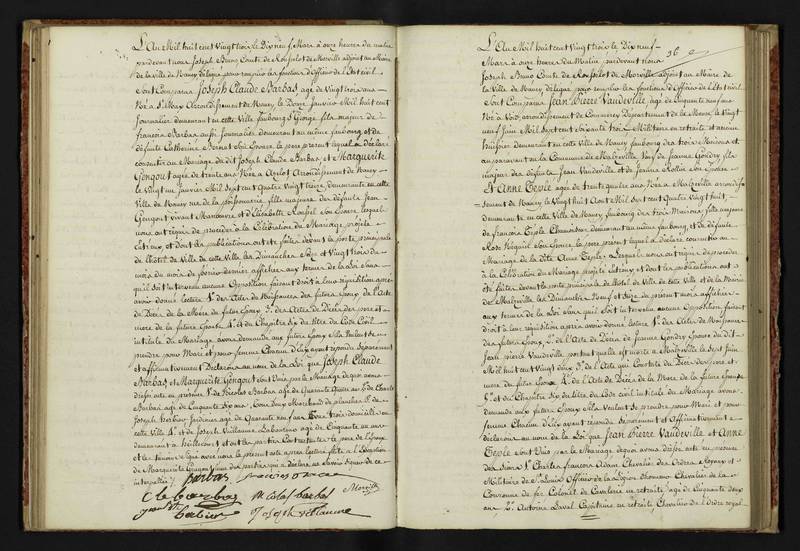 L'An Mil huit cent Vingt trois le Dix neuf Mars à onze heures du matin
pardevant nous Joseph Bruno Comte de Rouselot de Morville adjoint au Maire
de la ville de Nancy délégué pour remplir les fonctions d'Officier de l'Etat civil
Sont Comparus Joseph Claude Barbas age de Vingt trois ans
Né à St Max Arrondissement de Nancy le Douze Janvier Mil huit cent
Journalier demeurant en cette Ville faubourg St George fils majeur de
francois Barbas aussi Journalier demeurant au même faubourg et de
défunte Catherine son Epouse le père present lequel a Déclaré
consentir au Mariage du dit Joseph Claude Barbas et Marguerite
Gengout agée de trente ans Née à Arrondissement de Nancy
le Vingt un Janvier Mil Sept cent Quatre Vingt treize demeurante en cette
Ville de Nancy rue de la poissonnerie fille majeure des défunts Jean
Gengout vivant Manoeuvre et d'Elisabeth son Epouse lesquels
nous ont requis de proceder à la Célébration du Mariage projeté
entr'eux et dont les publications ont été faites devant la porte principale
de l'hotel de Ville de cette Ville les Dimanches Seize et Vingt trois du
mois de fevrier dernier affichés aux termes de la loi sans
qu'il soit intervenu aucune Opposition faisant droit à leur réquisition après
avoir donné lecture 1° des Actes de Naissances des futurs Epoux de l'Acte
de Décès de la Mère du futur Epoux 3° des Actes de Décès des père et
mère de la future Epouse 4° et du Chapitre Six du titre du Code Civil
intitulé du Mariage avons demandé aux futurs Epoux s'ils Veulent se
prendre pour Mari et pour femme Chacun d'eux ayant répondu séparément
et affirmativement Déclarons au nom de la loi que Joseph Claude
Barbas et Marguerite Gengout sont Unis par le Mariage de quoi avons
dressé acte en présence 1° de Nicolas Barbas age de Quarante Quatre ans 2° de Charles
Barbas age de Cinquante Six ans tous deux Marchand de planches 3° de
Joseph Barbier Jardinier age de Quarante neuf ans tous trois domiciliés en
cette Ville 4° et de Joseph Villaume Laboureur age de Cinquante un ans
demeurant à et ont les parties Contractantes le père de l'Epoux
et les témoins signé avec nous le présent acte après lecture faite à l'Exception
de Marguerite Gengout l'une des parties qui a déclaré ne savoir signer de ce
interpellée
Barbas
Cle barbas
nicolas barbas
Morville
barbier
joseph villaume
36
L'An Mil huit cent Vingt trois le Dix neuf
Mars à onze heures du Matin pardevant nous
Joseph Bruno Comte de Rouselot de Morville adjoint au Maire
de la Ville de Nancy délégué pour remplir les fonctions d'Officier de l'Etat civil
Sont Comparus Jean Pierre Vaudeville age de Cinquante neuf ans
Né à Void arrondissement de Commercy Département de la Meuse le Vingt
neuf Juin Mil Sept cent soixante trois Militaire en retraite et ancien
huissier demeurant en cette Ville de Nancy faubourg des trois Maisons et
auparavant en la Commune de Malzéville Veuf de Jeanne Gondry fils
majeur des défunts Jean Vaudeville et de Jeanne Rollin son Epouse
Et Anne Teple agée de trente quatre ans Née à Malzéville arrondis
sement de Nancy le Vingt huit Aout Mil Sept cent Quatre Vingt huit
demeurante en cette Ville de Nancy faubourg des trois Maisons fille majeure
de françois Teple demeurant au même faubourg et de défunte
Rose son Epouse le père present lequel a déclaré consentir au
Mariage de la dite Anne Teple Lesquels nous ont requis de proceder
à la Célébration du Mariage projeté entr'eux et dont les publications ont
été faites devant la porte principale de l'hotel de Ville de cette Ville et de la Mairie
de Malzéville les Dimanches Neuf et Seize du présent mois affichés
aux termes de la Loi sans qu'il soit intervenu aucune Opposition faisant
droit à leur réquisition après avoir donné lecture 1° des Actes de Naissances
des futurs Epoux 2° de l'Acte de Décès de Jeanne Gondry Epouse du dit
Jean Pierre Vaudeville portant qu'elle est morte à Malzéville le Sept Juin
Mil huit cent Vingt deux 3° de l'Acte qui Constate du Décès des père et
mère du futur Epoux 4° de l'Acte de Décès de la Mère de la future Epouse
5° et du Chapitre Six du titre du Code civil intitulé du Mariage avons
demandé aux futurs Epoux s'ils Veulent se prendre pour Mari et pour
femme Chacun d'eux ayant répondu séparément et Affirmativement
déclarons au nom de la Loi que Jean Pierre Vaudeville et Anne
Teple sont Unis par le Mariage de quoi avons dressé acte en présence
des Sieurs 1° Charles françois Adam Chevalier des Ordres Royaux et
Militaire de St Louis Officier de la Légion d'honneur Chevalier de la
Couronne de fer Colonel de Cavalerie en retraite age de Cinquante deux
ans 2° Antoine Laval Capitaine en retraite Chevalier de l'Ordre royal